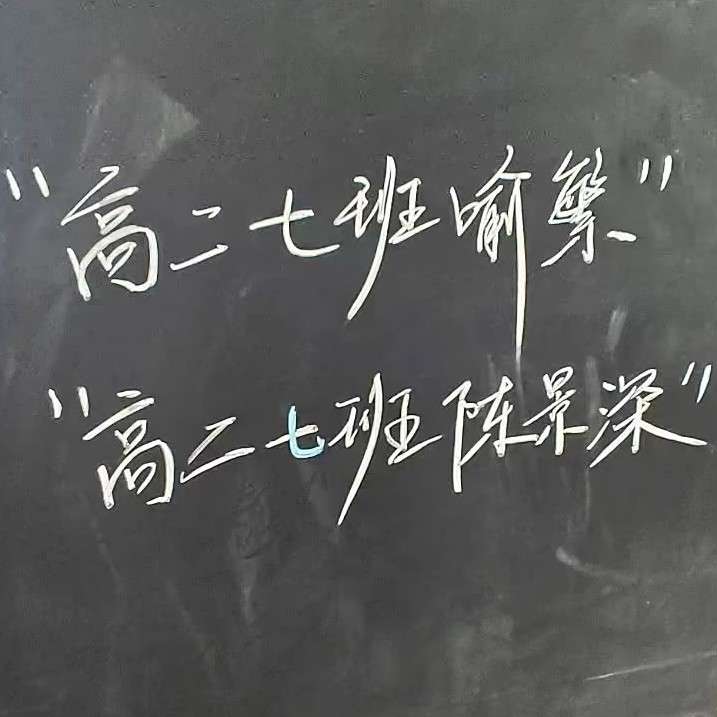 "高二七班喻繁"
"高二七班陈景深"